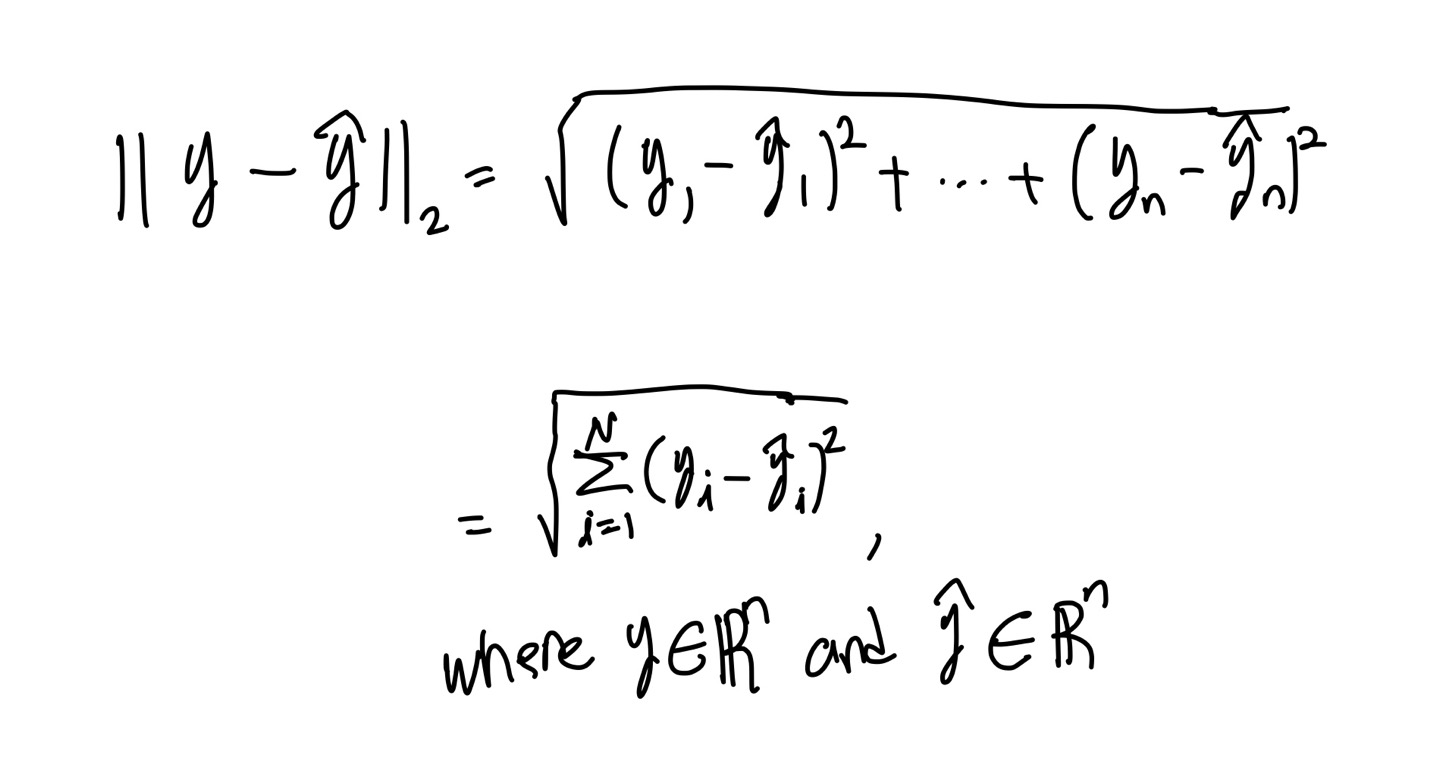 ‖y − ŷ‖₂ = √((y₁ − ŷ₁)² + ... + (yₙ − ŷₙ)²)
= √(∑_{i=1}^{N} (yᵢ − ŷᵢ)²) ,
where y ∈ ℝⁿ and ŷ ∈ ℝⁿ